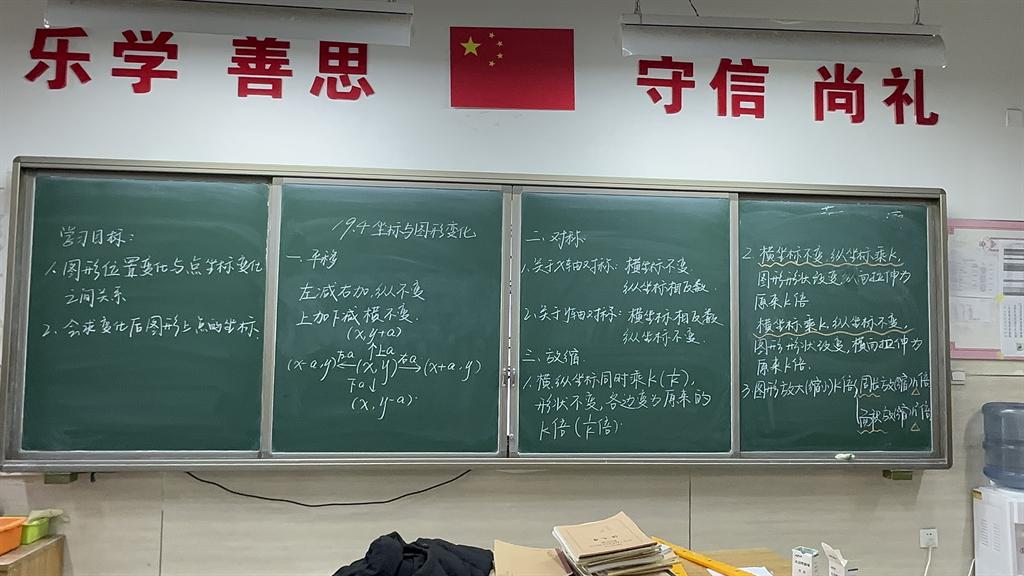 乐学 善思
守信 尚礼
学习目标:
1.图形位置变化与点坐标变化
之间关系
2.会求变化后图形上点的坐标.
19.4坐标与图形变化
一.平移
左减右加,纵不变
上加下减 横不变.
(x,y+a)
↑上a
(x-a,y) ←左a (x,y) 右a→ (x+a,y)
下a↓
(x,y-a).
二.对称.
1.关于x轴对称: 横坐标不变
纵坐标相反数.
2.关于y轴对称: 横坐标相反数
纵坐标不变.
三.放缩
1.横纵坐标同时乘k(1/k),
形状不变,各边变为原来的
k倍(1/k倍).
2.横坐标不变,纵坐标乘k.
图形形状改变,纵向拉伸为
原来k倍
横坐标乘k,纵坐标不变.
图形形状改变,横向拉伸为
原来k倍.
3图形放大(缩小)k倍
周长放(缩)k倍
面积放(缩)k²倍